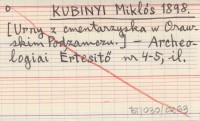 KUBINYI Miklós 1898.
[Urny z cmentarzyska w Oraw-
skim Podzamczu.] — Archeo-
logiai Értesitő nr 4-5, il.